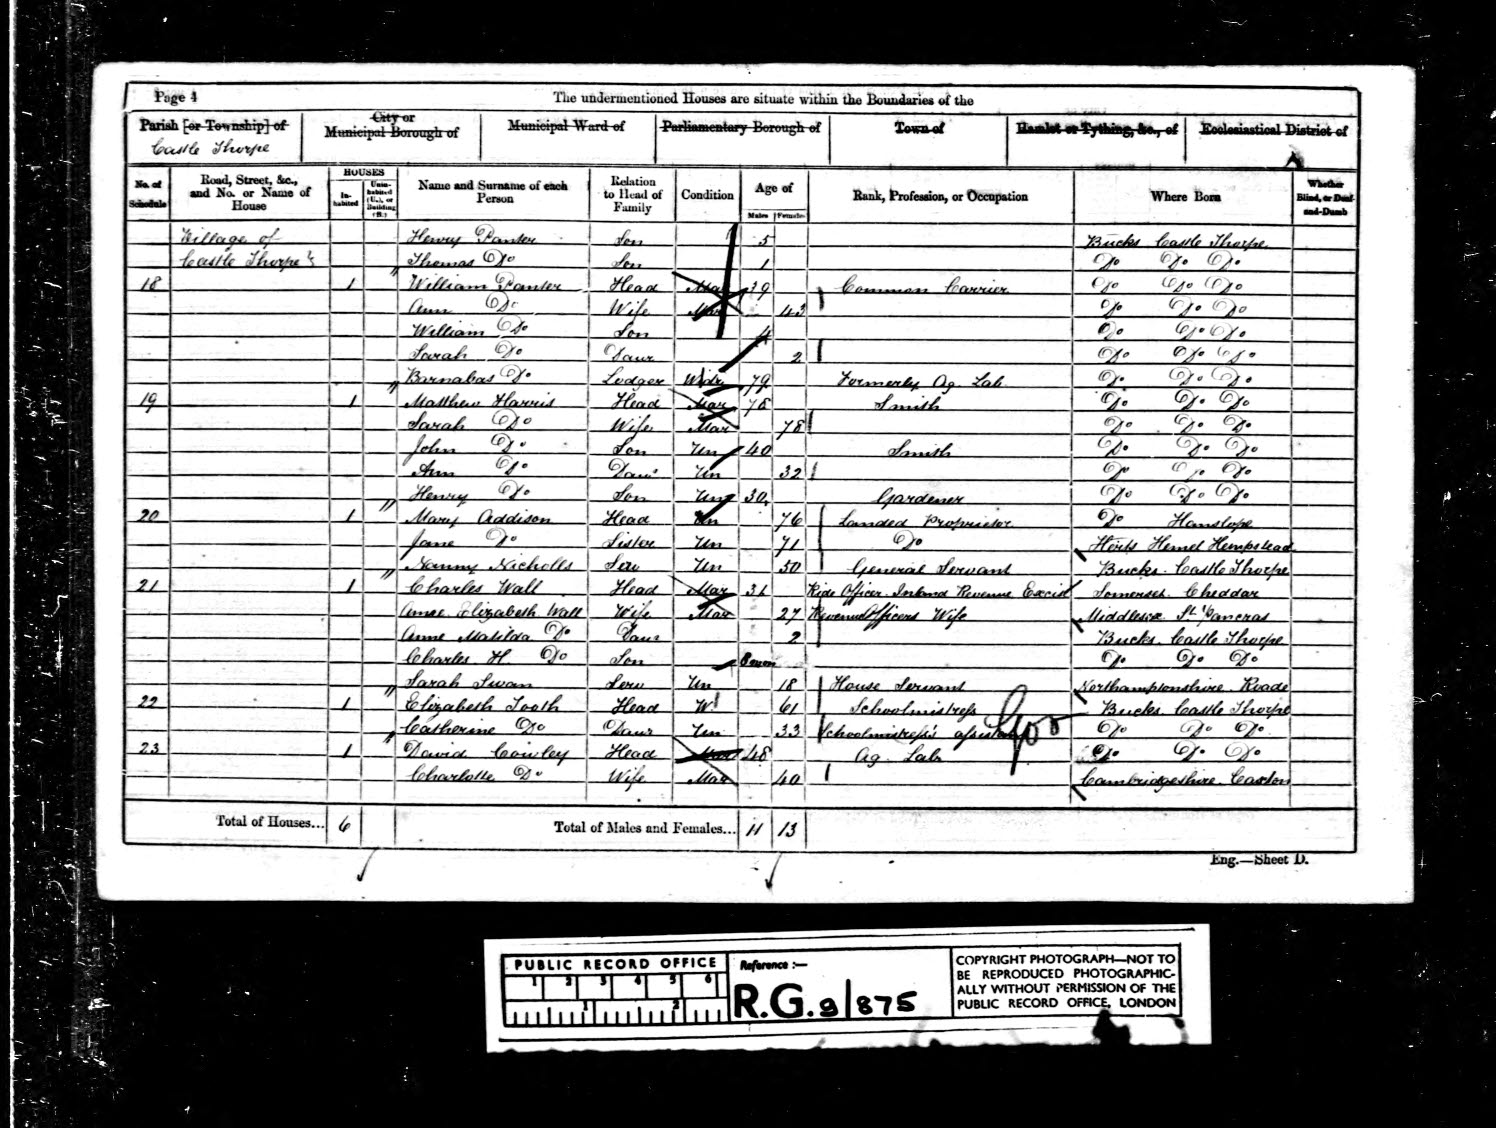 Page 4 The undermentioned Houses are situate within the Boundaries of the
Parish [or Township] of City or Municipal Borough of Municipal Ward of Parliamentary Borough of Town of Hamlet or Tything, &c., of Ecclesiastical District of
Castle Thorpe
No. of Schedule Road, Street, &c., and No. or Name of House HOUSES Inhabited Uninhabited (U.), or Building (B.) Name and Surname of each Person Relation to Head of Family Condition Age of Males Females Rank, Profession, or Occupation Where Born Whether Blind, or Deaf-and-Dumb
Village of Henry Panter Son 5 Bucks Castle Thorpe
Castle Thorpe Thomas Do Son 1 Do Do Do
18 1 William Panter Head Mar 39 Common Carrier Do Do Do
Ann Do Wife Mar 43 Do Do Do
William Do Son 4 Do Do Do
Sarah Do Daur 2 Do Do Do
Barnabas Do Lodger Widr 79 Formerly Ag. Lab Do Do Do
19 1 Matthew Harris Head Mar 78 Smith Do Do Do
Sarah Do Wife Mar 78 Do Do Do
John Do Son Un 40 Smith Do Do Do
Ann Do Daur Un 32 Do Do Do
Henry Do Son Un 30 Gardener Do Do Do
20 1 Mary Addison Head Un 76 Landed Proprietor Do Hanslope
Jane Do Sister Un 71 Do Herts Hemel Hempstead
Nanny Nicholls Serv Un 50 General Servant Bucks. Castle Thorpe
21 1 Charles Wall Head Mar 31 Ride Officer Inland Revenue Excise Somerset Cheddar
Elizabeth Wall Wife Mar 27 Revenue Officers Wife Middlesex St Pancras
Anne Matilda Do Daur 2 Bucks. Castle Thorpe
Charles H. Do Son 8 mon Do Do Do
Sarah Swan Serv Un 18 House Servant Northamptonshire. Roade
22 1 Elizabeth Tooth Head W 61 Schoolmistress Bucks. Castle Thorpe
Catherine Do Daur Un 33 Schoolmistress's assistant Do Do Do
23 1 David Cowley Head Mar 48 Ag. Lab Do Do Do
Charlotte Do Wife Mar 40 Cambridgeshire. Caxton
Total of Houses... 6 Total of Males and Females... 11 13
Eng.—Sheet D.
PUBLIC RECORD OFFICE
1 2 3 4 5 6
1 2
Reference :—
R.G. 9/875
COPYRIGHT PHOTOGRAPH—NOT TO
BE REPRODUCED PHOTOGRAPHIC-
ALLY WITHOUT PERMISSION OF THE
PUBLIC RECORD OFFICE, LONDON